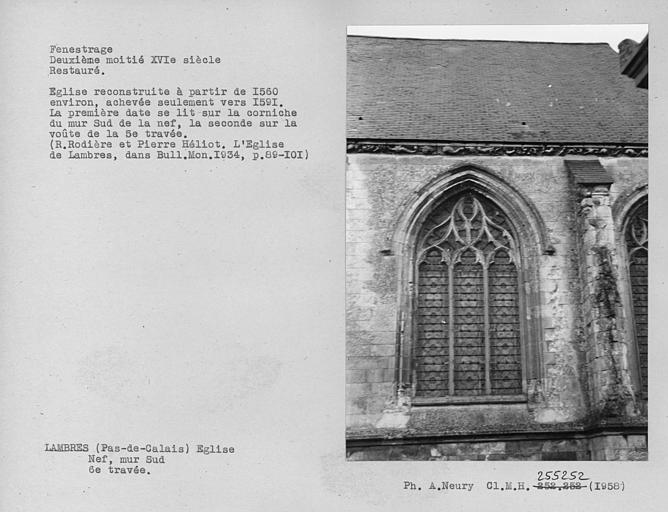 Fenestrage
Deuxième moitié XVIe siècle
Restauré.
Eglise reconstruite à partir de I560
environ, achevée seulement vers I59I.
La première date se lit sur la corniche
du mur Sud de la nef, la seconde sur la
voûte de la 5e travée.
(R.Rodière et Pierre Héliot. L'Eglise
de Lambres, dans Bull.Mon.I934, p.89-IOI)
LAMBRES (Pas-de-Calais) Eglise
Nef, mur Sud
6e travée.
255252
Ph. A.Neury Cl.M.H. 252.252 (I958)